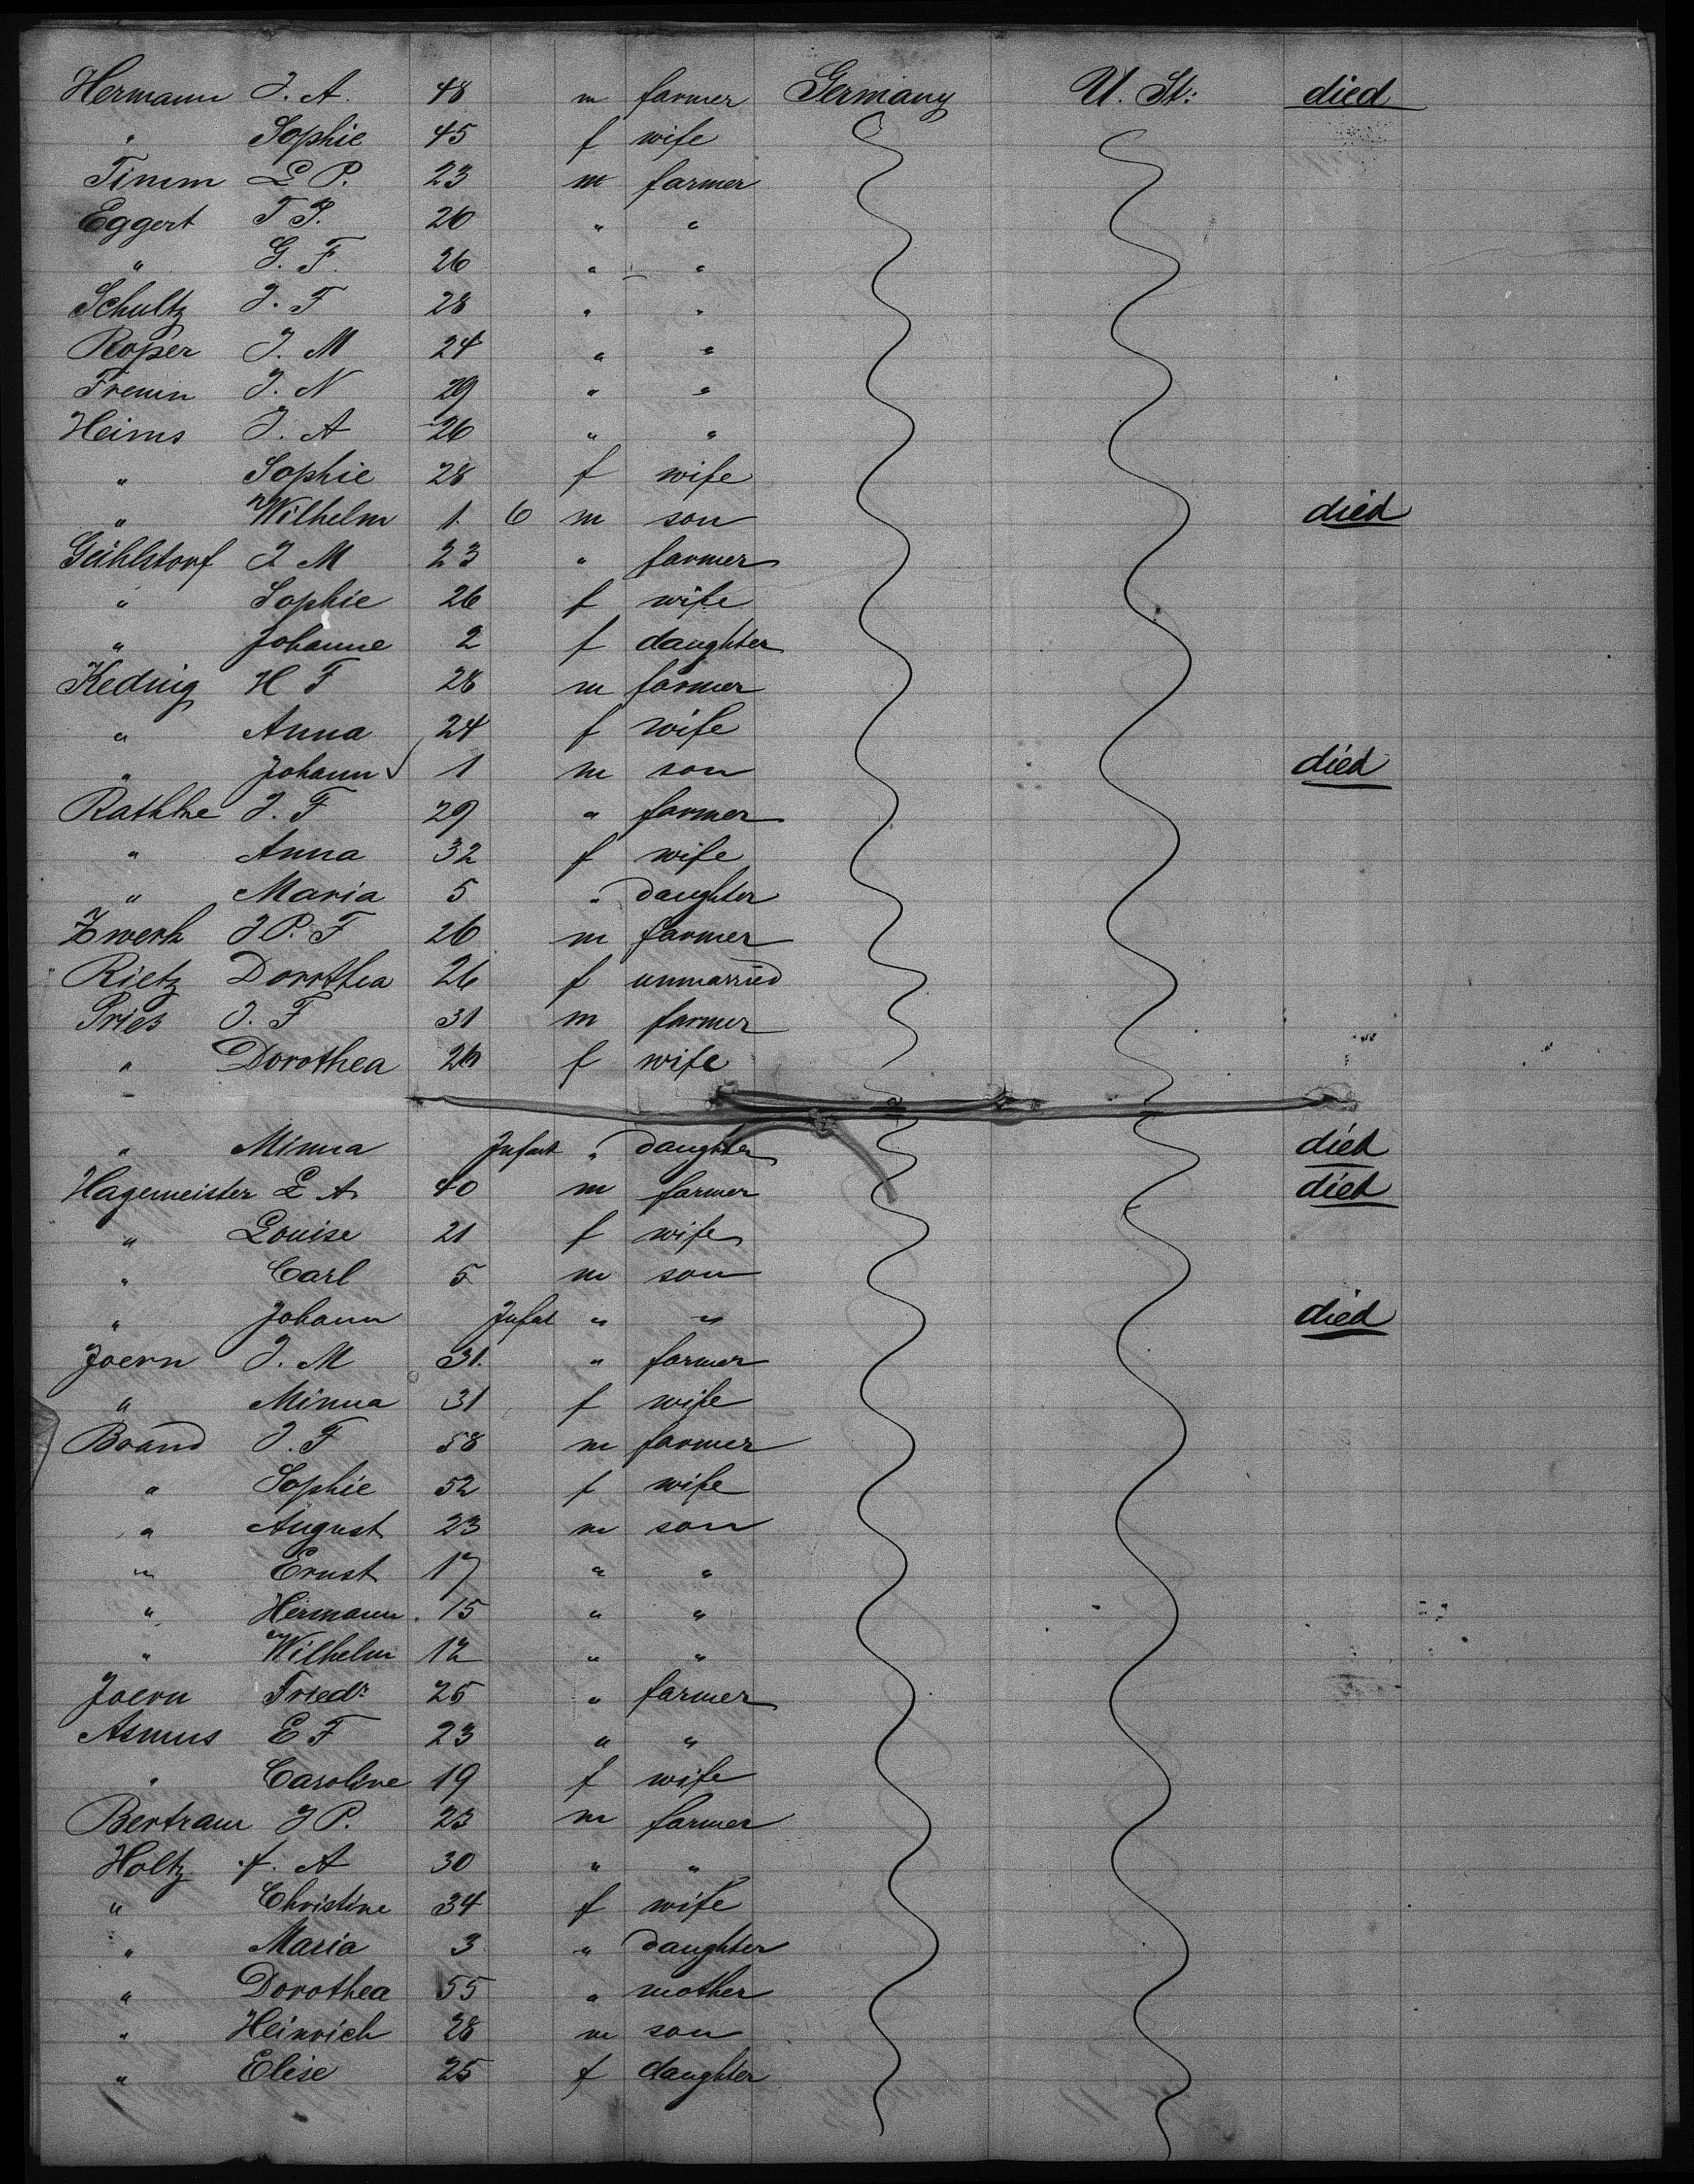 Hermann J. A. 48 m farmer Germany U. St: died
" Sophie 45 f wife
Timm L P. 23 m farmer
Eggert T J. 20 " "
" G. F. 26 " "
Schultz J. F 28 " "
Roper J. M 24 " "
Fremm J. N 29 " "
Heims J. A 26 " "
" Sophie 28 f wife
" Wilhelm 1. 6 m son died
Gühlstorf J M 23 " farmer
" Sophie 26 f wife
" Johanne 2 f daughter
Keding H F 28 m farmer
" Anna 24 f wife
" Johann 1 m son died
Rathke J. F 29 " farmer
" Anna 32 f wife
" Maria 5 " daughter
Zwerk J P. F 26 m farmer
Rietz Dorothea 26 f unmarried
Pries J. F 31 m farmer
" Dorothea 26 f wife
" Minna Infant " daughter died
Hagemeister L A 40 m farmer died
" Louise 21 f wife
" Carl 5 m son
" Johann Infat " " died
Joern J. M 31. " farmer
" Minna 31 f wife
Brand J. F 58 m farmer
" Sophie 52 f wife
" August 23 m son
" Ernst 17 " "
" Hermann 15 " "
" Wilhelm 12 " "
Joern Friedr: 25 " farmer
Asmus E F 23 " "
" Caroline 19 f wife
Bertram J P. 23 m farmer
Holtz f. A 30 " "
" Christine 34 f wife
" Maria 3 " daughter
" Dorothea 55 " mother
" Heinrich 28 m son
" Elise 25 f daughter